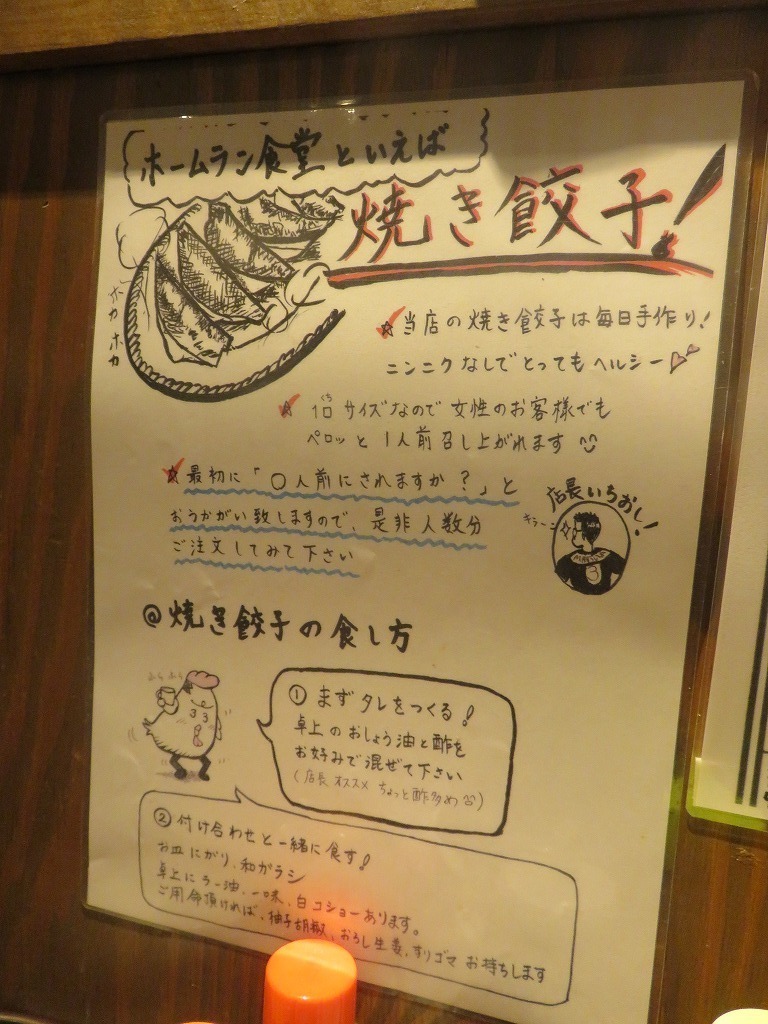 ホームラン食堂といえば
焼き餃子!
ホカホカ
☆当店の焼き餃子は毎日手作り!
ニンニクなしでとってもヘルシー
☆1口サイズなので女性のお客様でも
くち
ペロッと1人前召し上がれます
☆最初に「〇人前にされますか?」と
おうかがい致しますので、是非人数分
ご注文してみて下さい
店長いちおし!
キラーン
@焼き餃子の食し方
ふらふら
①まずタレをつくる!
卓上のおしょう油と酢を
お好みで混ぜて下さい
(店長オススメ ちょっと酢多め)
②付け合わせと一緒に食す!
お皿にガリ、和がラシ
卓上にラー油、一味、白コショーあります。
ご用命頂ければ、柚子胡椒、おろし生姜、すりゴマ お持ちします